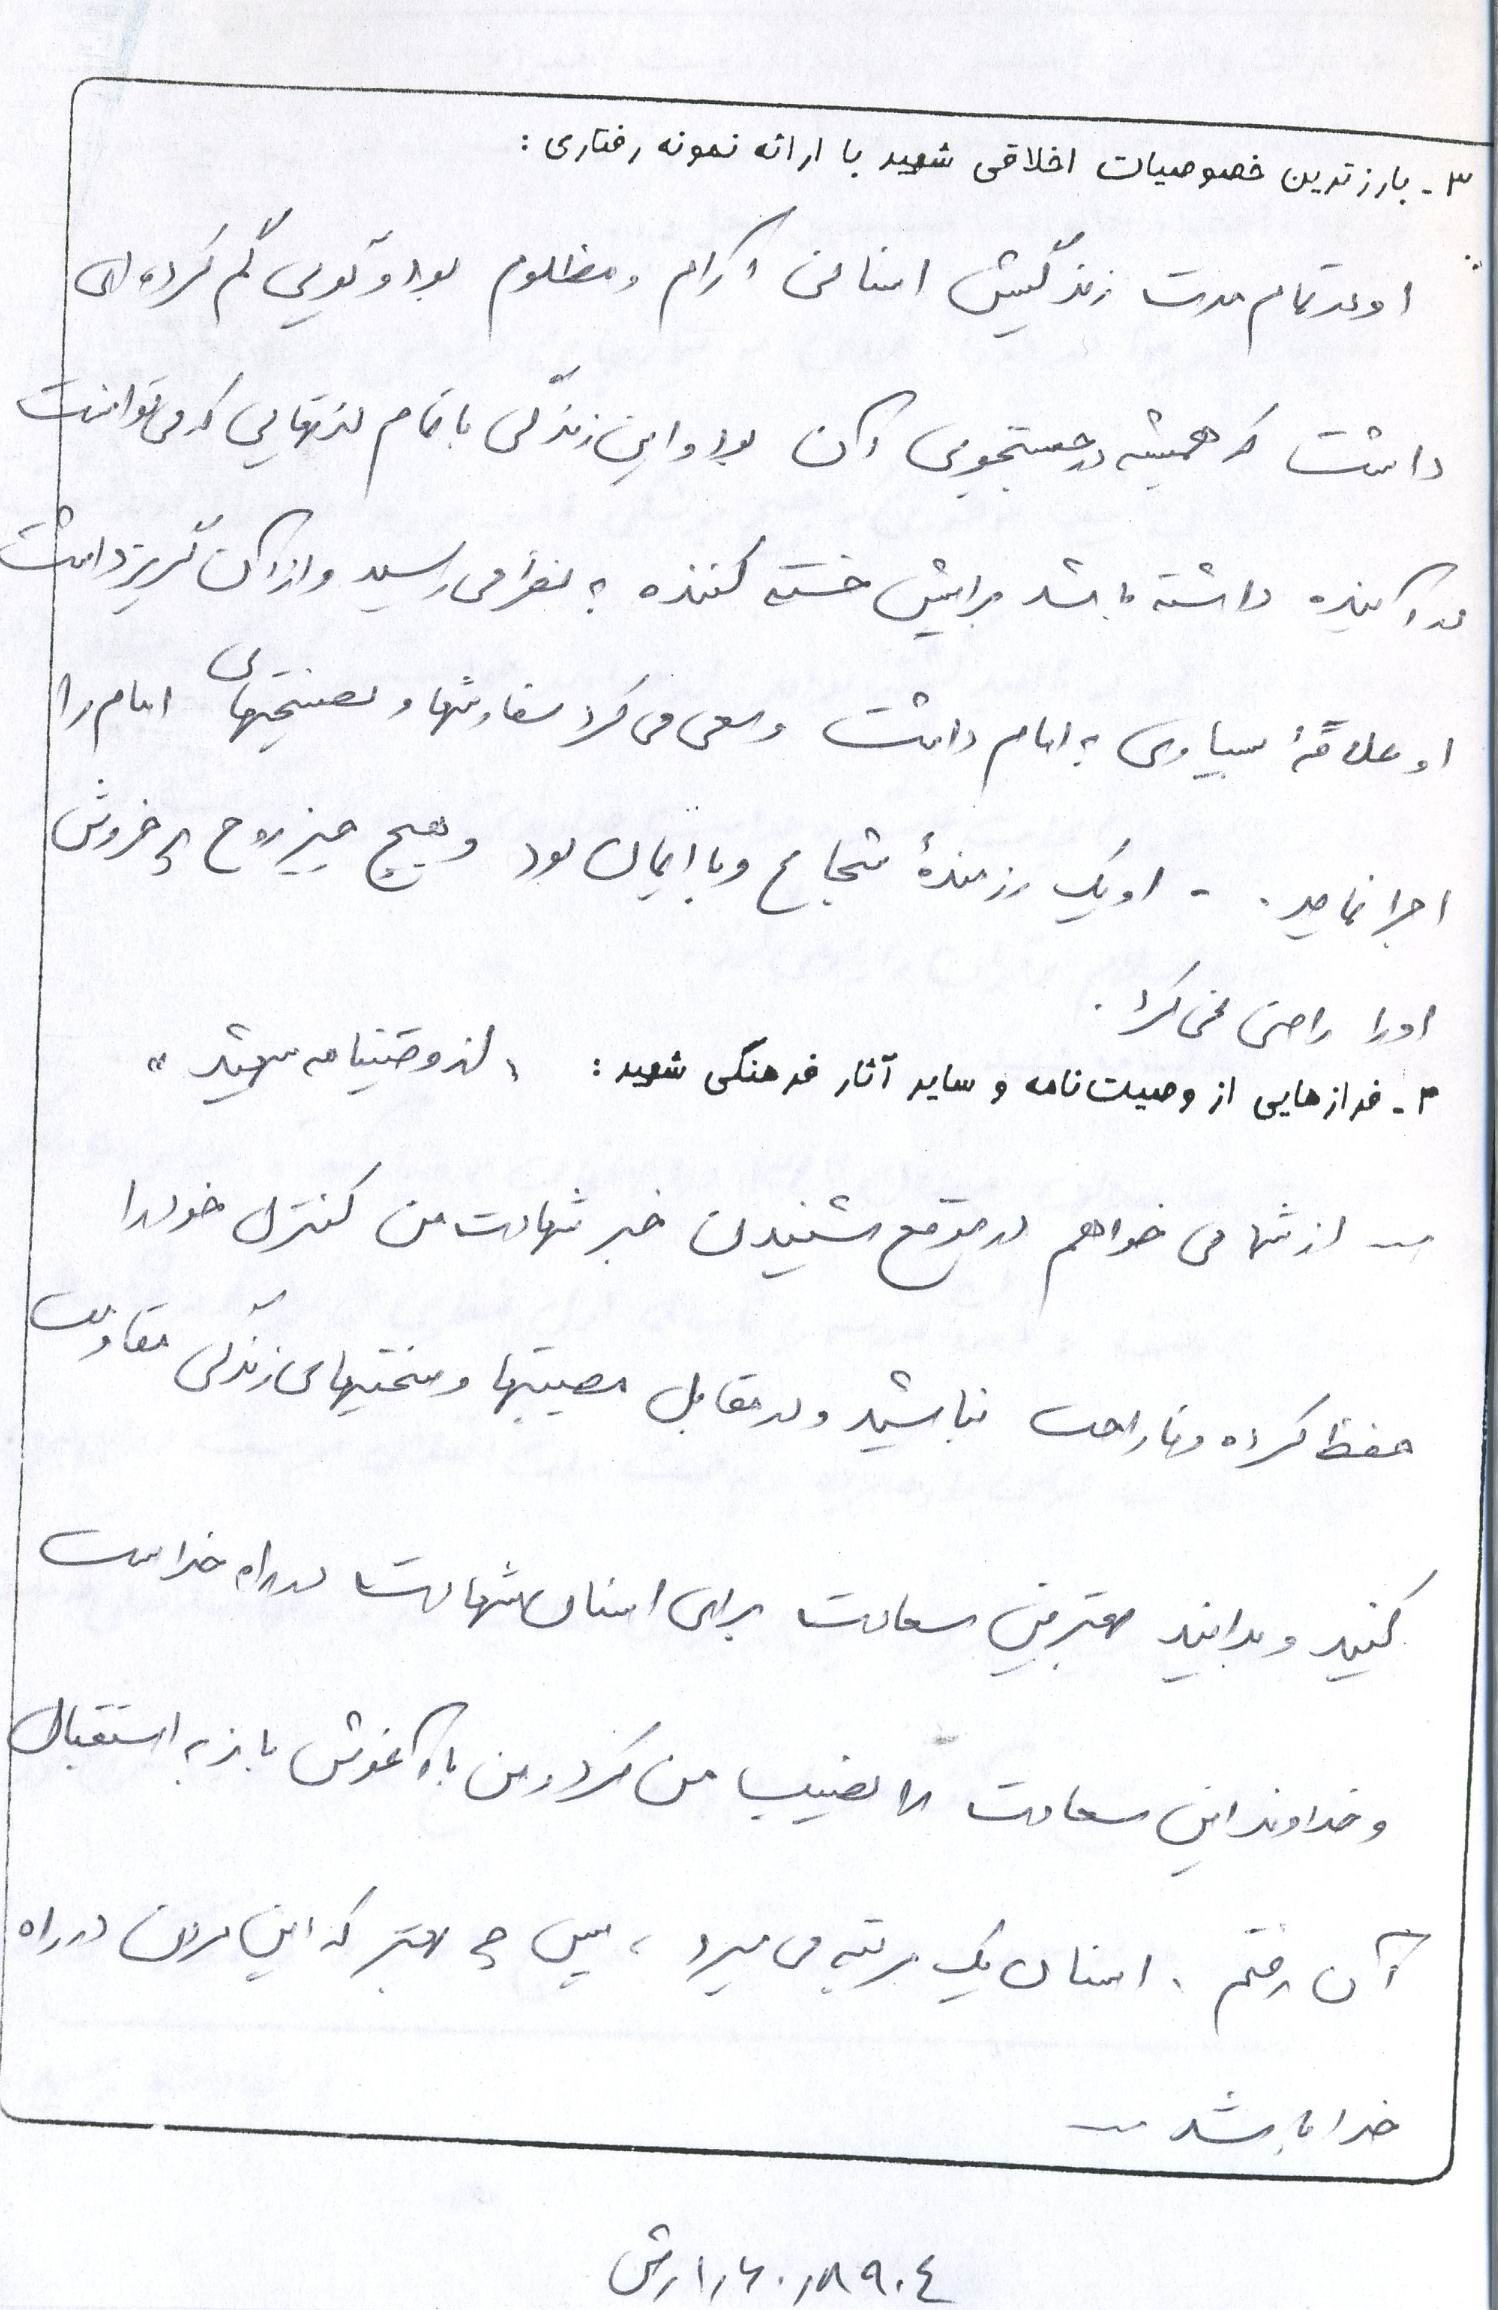 ۳- بارزترین خصوصیات اخلاقی شهید با ارائه نمونه رفتاری :
او در تمام مدت زندگیش انسانی آرام و مظلوم بود و گویی گم کرده ای
داشت که همیشه در جستجوی آن بود و این زندگی با تمام لذتهایی که می توانست
در آینده داشته باشد برایش خسته کننده به نظر می رسید و از آن گریز داشت
او علاقهٔ بسیاری به امام داشت و سعی می کرد سفارشها و نصیحتهای امام را
اجرا نماید . - او یک رزمندهٔ شجاع و با ایمان بود و هیچ چیز روح پر خروش
او را راضی نمی کرد .
۴- فرازهایی از وصیت‌نامه و سایر آثار فرهنگی شهید : « از وصیتنامه شهید »
... از شما می خواهم در موقع شنیدن خبر شهادت من کنترل خود را
حفظ کرده و ناراحت نباشید و در مقابل مصیبتها و سختیهای زندگی مقاومت
کنید و بدانید بهترین سعادت برای انسان شهادت در راه خداست
و خداوند این سعادت را نصیب من کرد و من با آغوش باز به استقبال
آن رفتم . انسان یک مرتبه می میرد ، پس چه بهتر که این مردن در راه
خدا باشد ...